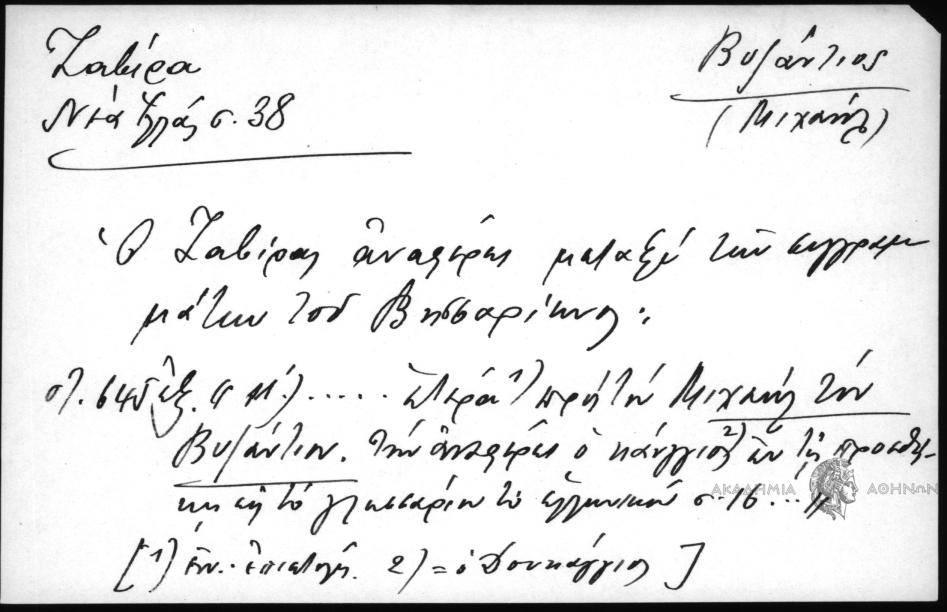 Ζαβίρα
Νέα Ἑλλάς σ. 38
Βυζάντιος
(Μιχαήλ)
Ὁ Ζαβίρας ἀναφέρει μεταξύ τῶν συγγραμ
μάτων τοῦ Βησσαρίωνος:
στ. 645 ἑξ. " ια΄.) ..... ἑτέρα 1) πρὸς τὸν Μιχαήλ τόν
Βυζάντιον. τὴν ἀναφέρει ὁ Κάγγιος 2) ἐν τῇ προσθή-
κῃ εἰς τὸ γλωσσάριον τὸ ἑλληνικόν σ. 16 ... "
[1) ἐν. ἐπιστολή. 2) = ὁ Δουκάγγιος ]
ΑΚΑΔΗΜΙΑ ΑΘΗΝΩΝ